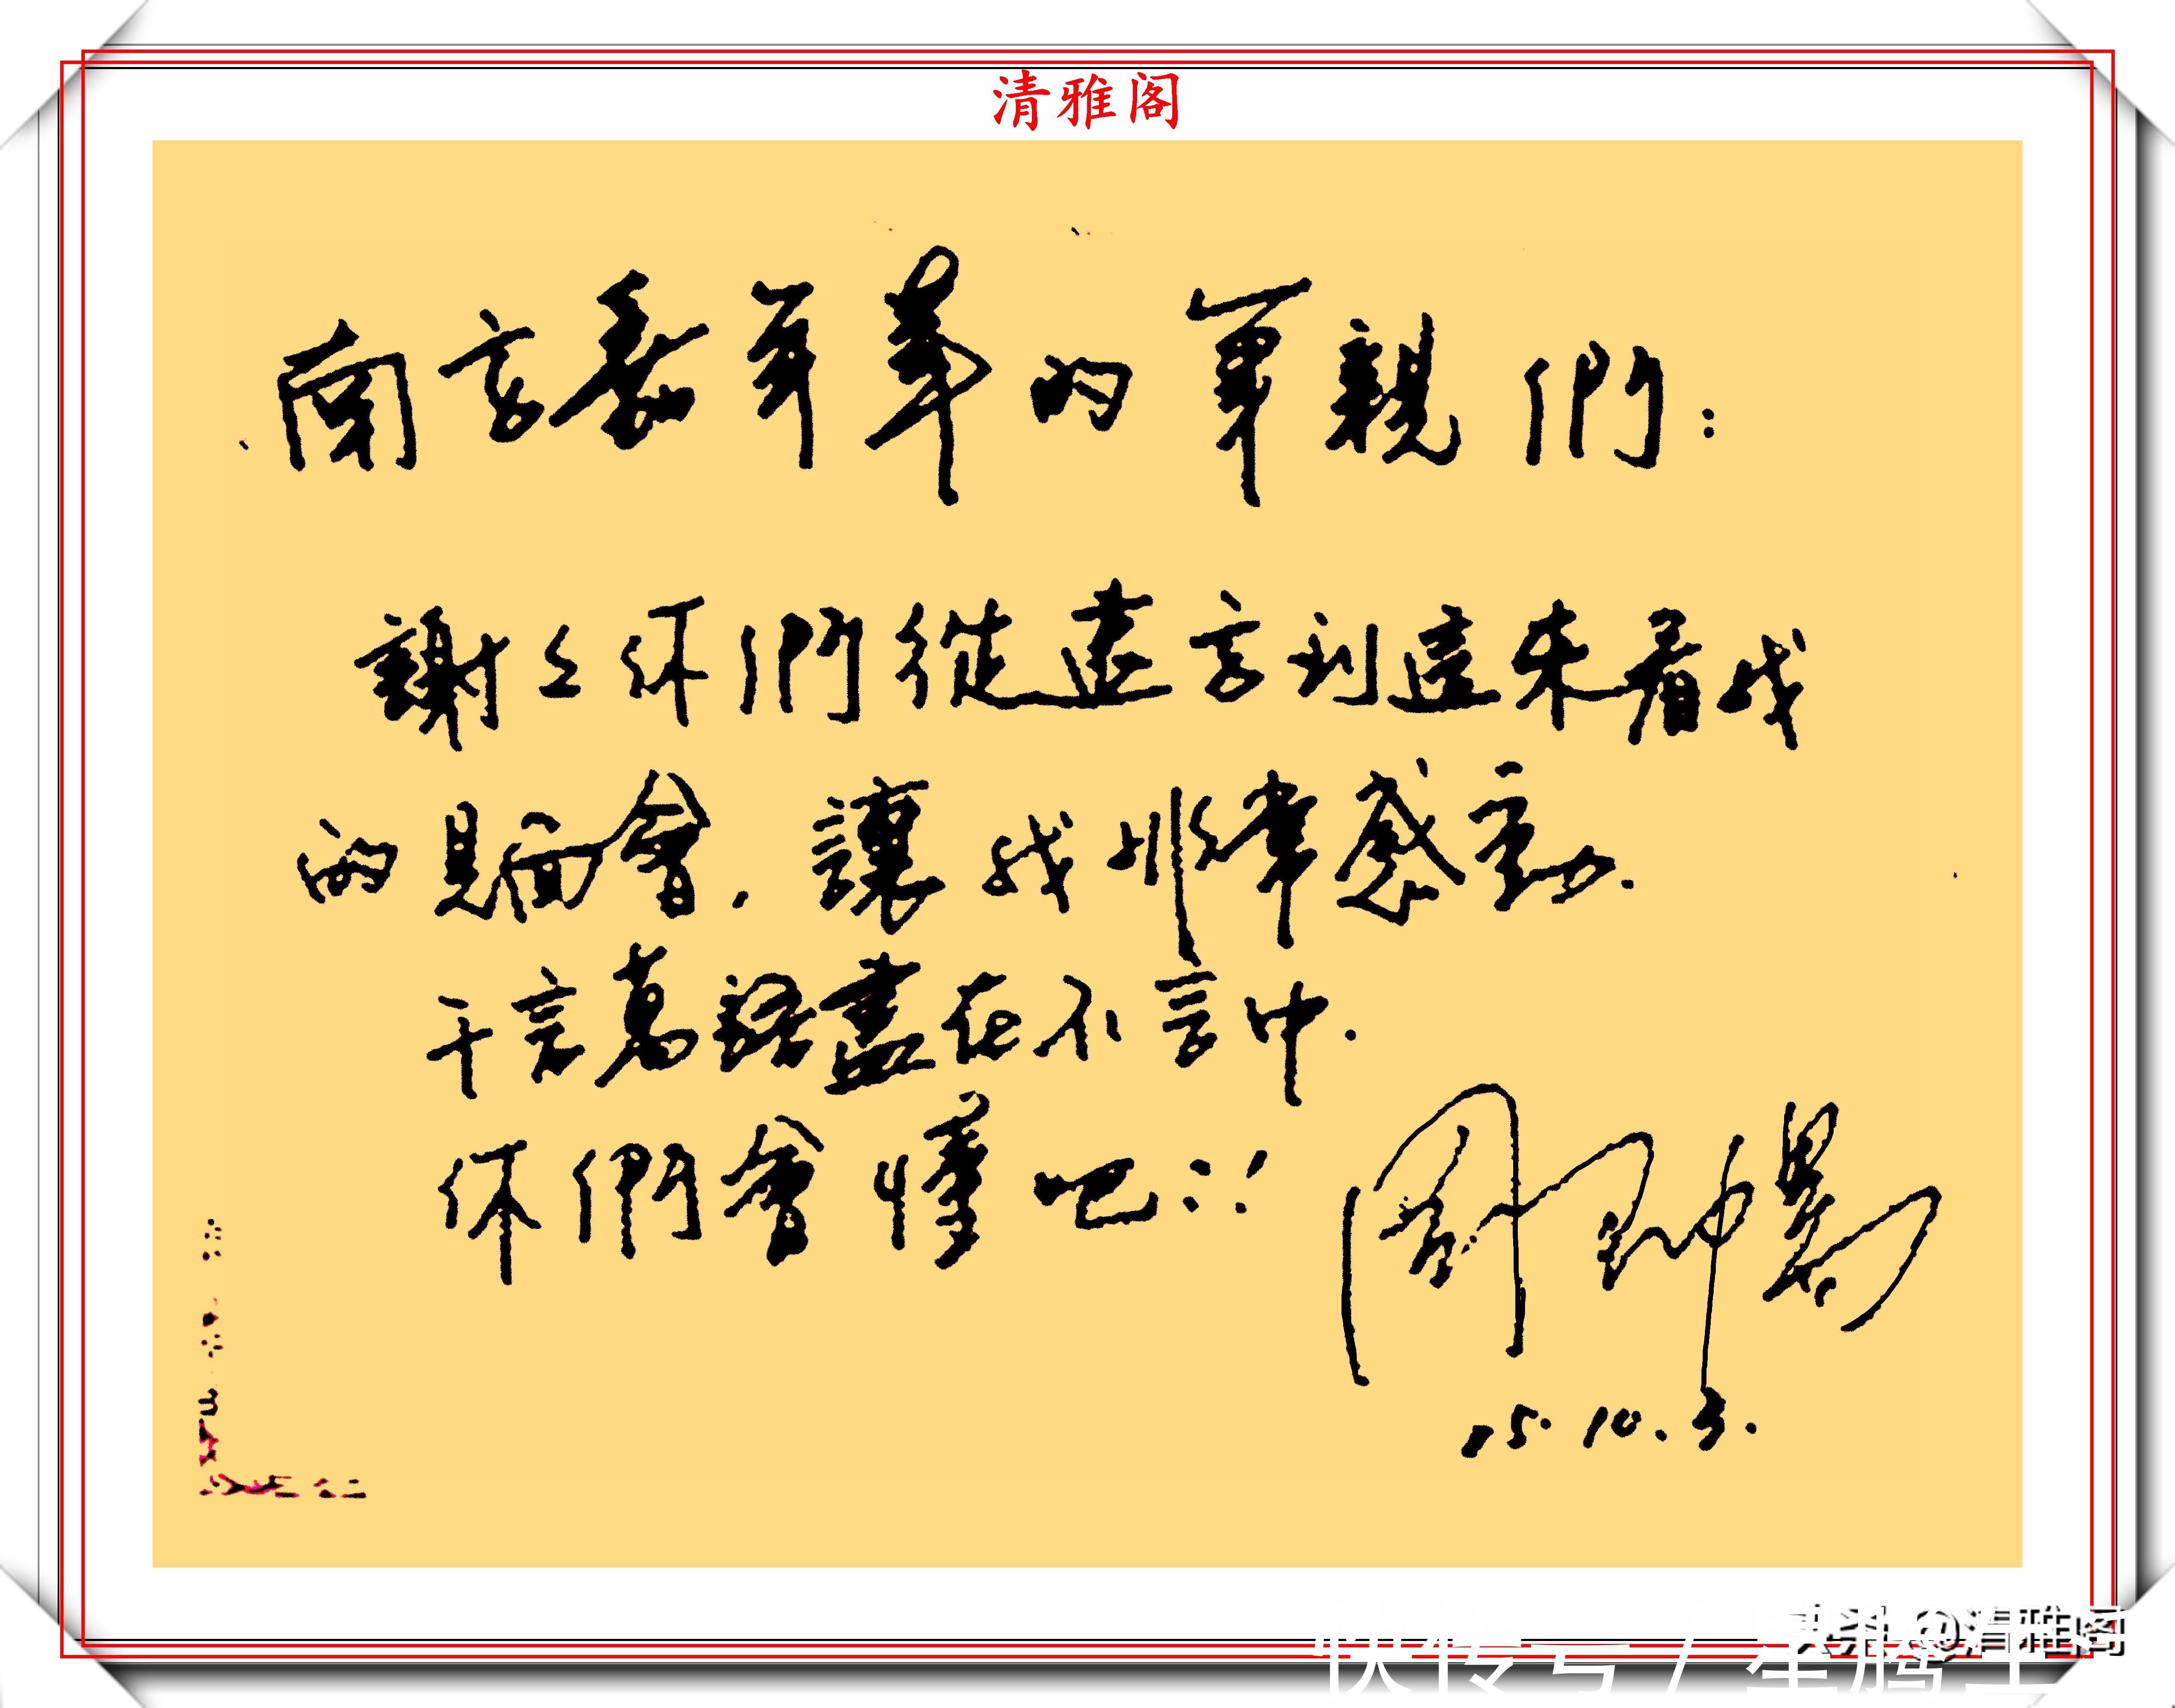 清雅阁
南京嘉年華的 親們:
謝々你們從 京到這來看我
的見面會,讓我非常感動.
千言萬語盡在不言中.
你們會懂吧
15.10.3.
@清雅阁
快传号/星